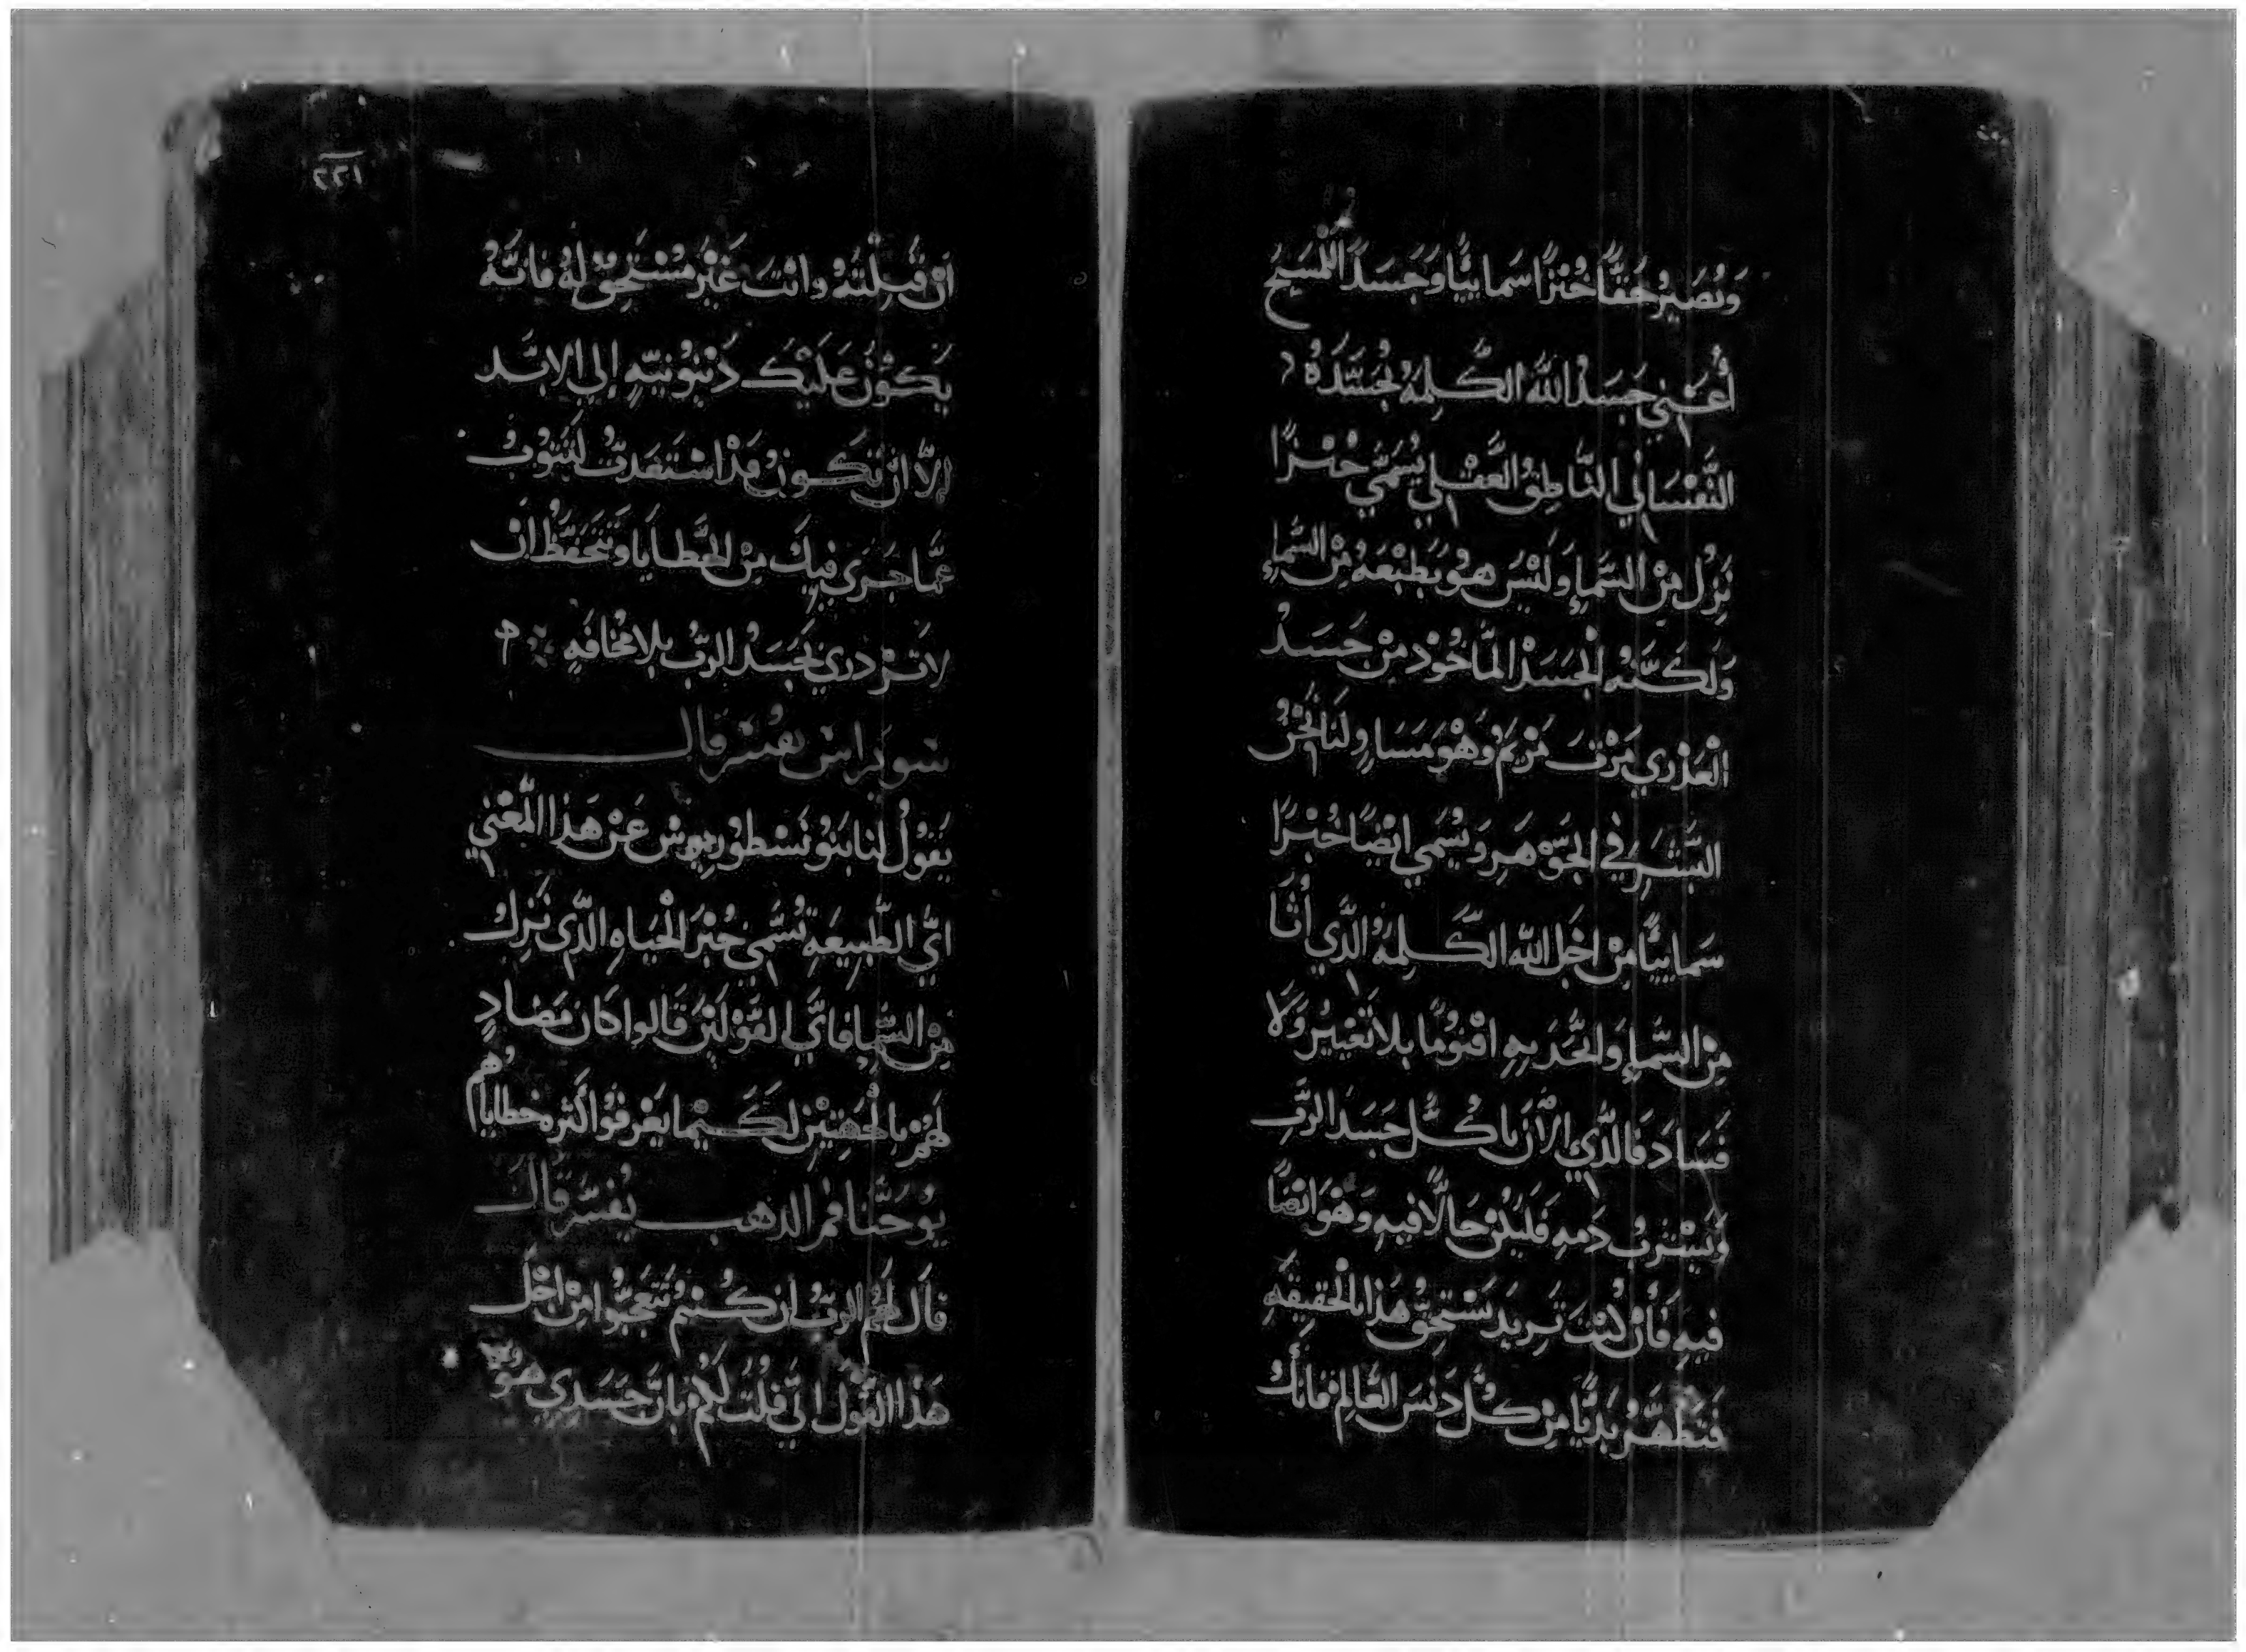 وَنُصَيرُ حَقًّا خُبْزًا سَمايِيًّا وَجَسَدَ المَسِيح
أَعْنِي جَسَدُ اللَّه الكَلِمَهُ بجَسَدَهُ
النَّفْسَانِي النَّاطِقُ العَقْلِي يُسَمَّي خُبْزًا
نَزِلُ مِنْ السَّماءِ وَلَيْسَ هُو بَطَبْعَهُ مِنْ السَّماءِ
وَلَكنَّهُ الجَسَدْ المَاخُوذ مِنْ جَسَدْ
الْعَذْرِي مَرْتَ مَرْيَمْ وَهُو مَسَاوِ لنَا نَحْنُ
البَشَرْ فِي الجَوْهَر وَيُسَمَي ايْضًا خُبْزًا
سَماييًّا مِنْ اجَل اللَّه الكَلِمَهُ الَّذي أتَا
مِنْ السَّماءِ وَاتَّحَدَ بِهِ اقْنُومًا بِلا تَغْيِيرْ وَلَا
فَسَادَ فَالَّذِي الأَنَ يَاكُل جَسَدَ الرَّبِ
وَيشْرَبُ دَمهِ فَلَيكُنْ حَالًا فِيهِ وَهُوَ ايْضًا
فِيهِ فَأنْ كُنْتَ تَرِيدَ تَسْتَحِقُّ هَذا بالحَقِيقَهِ
فَتَطَهَّرْ بَدِيًّا مِنْ كُلْ دَنَسَ العَالِمْ فَانَكَ
٢٢١
انْ قَبِلْتَهُ وانْتَ غَيْرُ مُسْتَحِقْ لَهُ فَانَّهُ
يَكُونُ عَلَيْكَ دَيْنُونِيَّهِ إلي الابَد
إلاَّ انْ تَكُونُ قَدْ اسْتَعَديْتُ لتَتُوبُ
عَمَّا جَرَي فِيكَ مِنْ الخَطايَا وَتَتَحَفَّظُ انْ
لا تَزْدرِي بجَسَدْ الرَّبْ بِلا مَخَافَهِ
سَويرَاسْ يفُسّر قال
يَقُولُ لَنا بَنُو نَسْطُورِيوسْ عَنْ هَذا المَعْنِي
ايُّ الطَّبِيعَهِ تُسَمَّي خُبْزَ الحَيَاهِ الَّذي نَزلُ
مِنْ السَّماءِ فَايَّ القَوْلَيْنْ قَالوا كَانَ مَضادٍ
لَهُمْ بالجِهَتِيْنْ لكَيْما يَعْرفُوا كَثرة خطاياهُم
يُوحَنَّا فمْ الدهب يُفسّرْ قال
قالَ لَهُمْ الرَّبُ ان كُنْتُمْ تَتَعَجَّبُوا مِنْ اجْلْ
هَذا القَوْل انِّي قُلْتُ لَكُمْ بانَّ جَسَدِي هُوَ